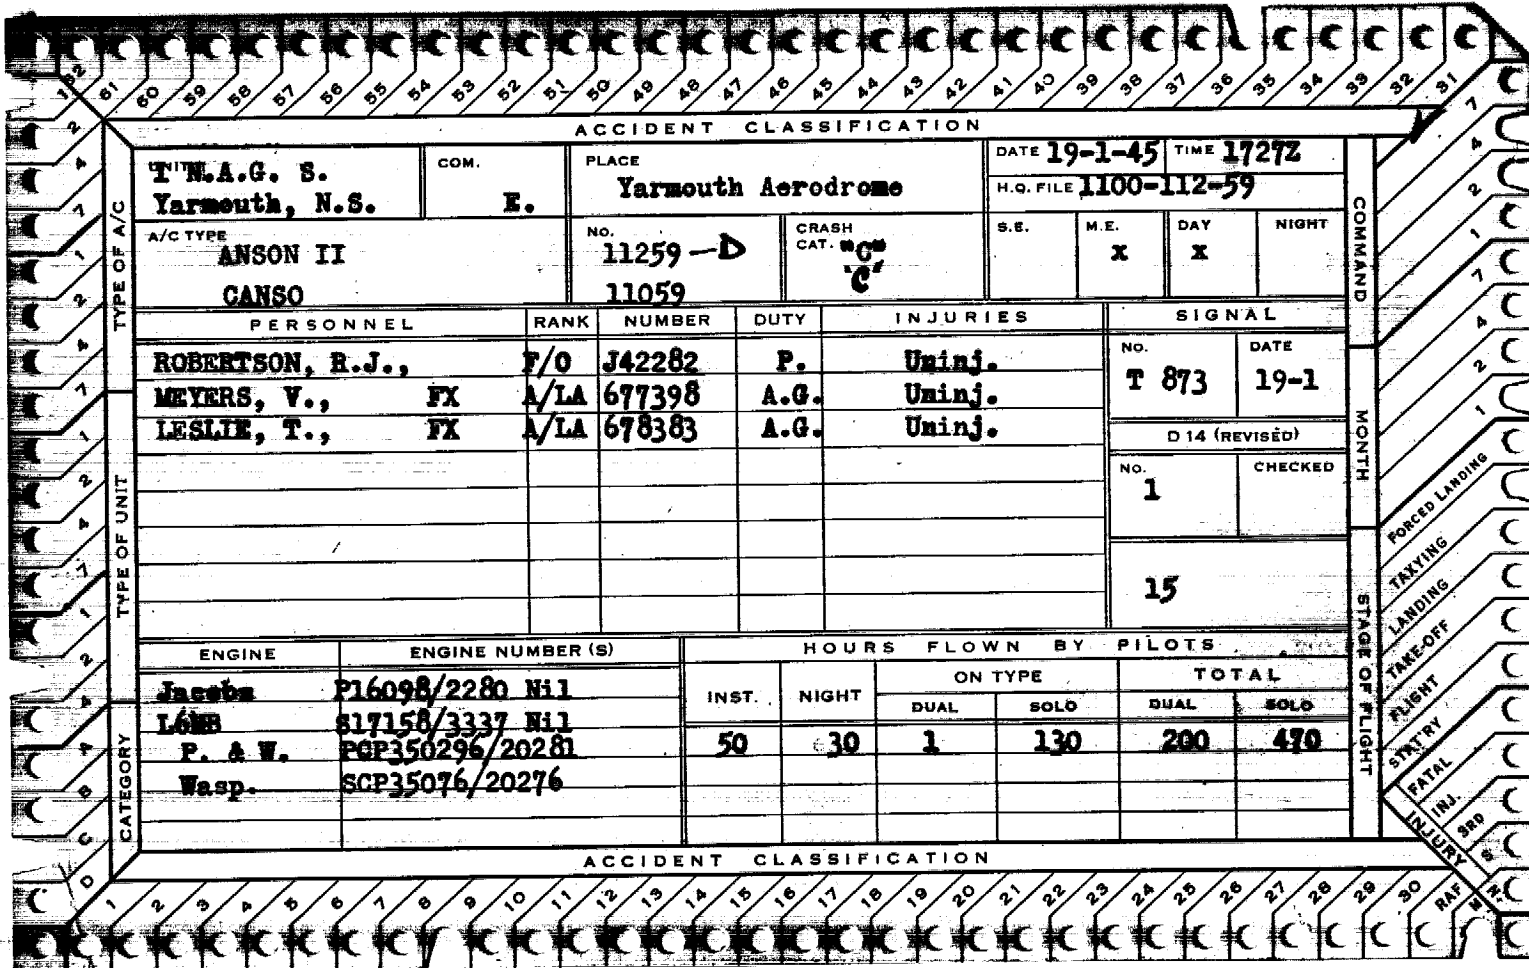 62 61 60 59 58 57 56 55 54 53 52 51 50 49 48 47 46 45 44 43 42 41 40 39 38 37 36 35 34 33 32 31
ACCIDENT CLASSIFICATION
UNIT N.A.G. S.
Yarmouth, N.S.
COM.
E.
PLACE
Yarmouth Aerodrome
DATE 19-1-45 TIME 1727Z
H.Q. FILE 1100-112-59
A/C TYPE
ANSON II
CANSO
NO.
11259 - D
11059
CRASH
CAT. "C"
"C"
S.E. M.E. DAY NIGHT
X X
PERSONNEL RANK NUMBER DUTY INJURIES SIGNAL
ROBERTSON, R.J., F/O J42282 P. Uninj.
MEYERS, V., FX A/LA 677398 A.G. Uninj.
LESLIE, T., FX A/LA 678383 A.G. Uninj.
NO. DATE
T 873 19-1
D 14 (REVISED)
NO. CHECKED
1
15
ENGINE ENGINE NUMBER (S)
Jacobs P16098/2280 Nil
L6MB S17158/3337 Nil
P. & W. PCP350296/20281
Wasp. SCP35076/20276
HOURS FLOWN BY PILOTS
INST. NIGHT ON TYPE TOTAL
DUAL SOLO DUAL SOLO
50 30 1 130 200 470
ACCIDENT CLASSIFICATION
1 2 3 4 5 6 7 8 9 10 11 12 13 14 15 16 17 18 19 20 21 22 23 24 25 26 27 28 29 30 RAF
TYPE OF A/C
TYPE OF UNIT
CATEGORY
1 2 4 7 1 2 4 7 1 2 4 7 1 2 4 A B C D
COMMAND
MONTH
STAGE OF FLIGHT
7 4 2 1 7 4 2 1
FORCED LANDING
TAXYING
LANDING
TAKE-OFF
FLIGHT
STAT'RY
FATAL
INJ.
3RD
INJURY